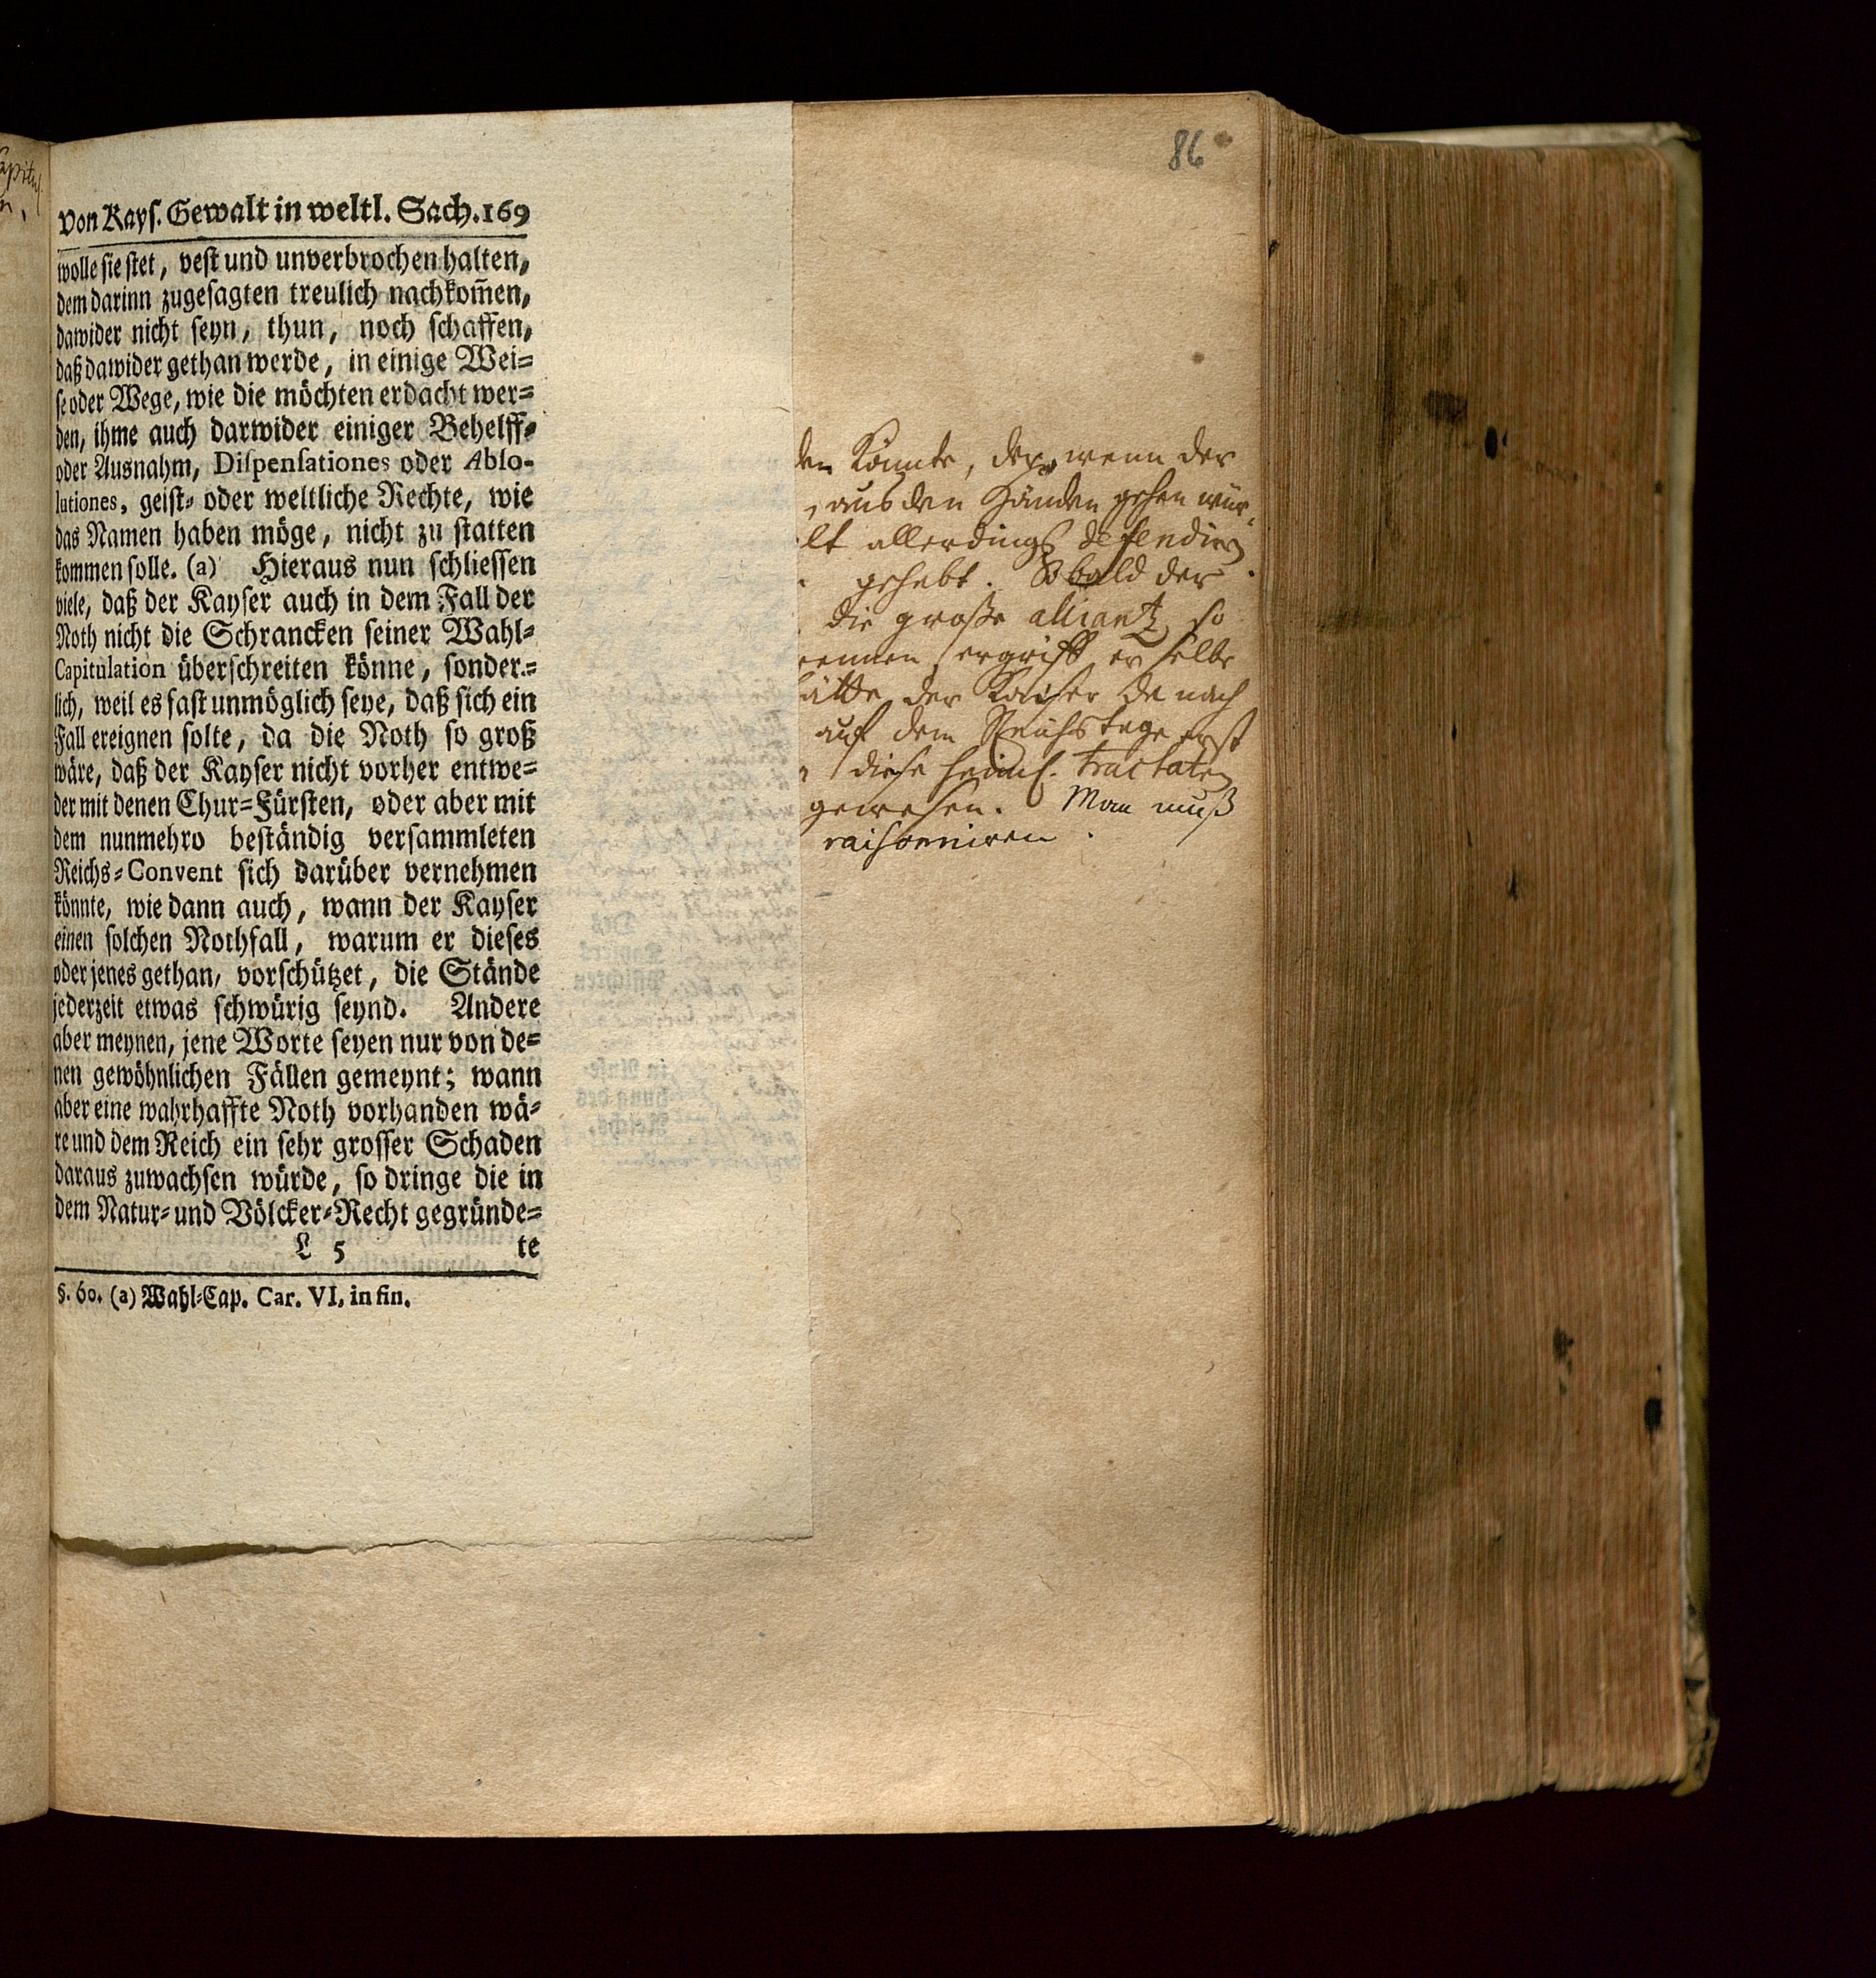 86
von Kays. Gewalt in weltl. Sach. 169
wolle sie stet, vest und unverbrochen halten,
dem darinn zugesagten treulich nachkom̄en,
dawider nicht seyn, thun, noch schaffen,
daß dawider gethan werde, in einige Wei=
se oder Wege, wie die möchten erdacht wer=
den, ihme auch darwider einiger Behelff=
oder Ausnahm, Dispensationes oder Abso-
lutiones, geist= oder weltliche Rechte, wie
das Namen haben möge, nicht zu statten
kommen solle. (a) Hieraus nun schliessen
viele, daß der Kayser auch in dem Fall der
Noth nicht die Schrancken seiner Wahl=
Capitulation überschreiten könne, sonder=
lich, weil es fast unmöglich seye, daß sich ein
Fall ereignen solte, da die Noth so groß
wäre, daß der Kayser nicht vorher entwe=
der mit denen Chur=Fürsten, oder aber mit
dem nunmehro beständig versammleten
Reichs=Convent sich darüber vernehmen
könnte, wie dann auch, wann der Kayser
einen solchen Nothfall, warum er dieses
oder jenes gethan, vorschützet, die Stände
jederzeit etwas schwürig seynd. Andere
aber meynen, jene Worte seyen nur von de=
nen gewöhnlichen Fällen gemeynt; wann
aber eine wahrhaffte Noth vorhanden wä=
re und dem Reich ein sehr grosser Schaden
daraus zuwachsen würde, so dringe die in
dem Natur= und Völcker=Recht gegründe=
L 5 te
§. 60. (a) Wahl=Cap. Car. VI. in fin.
den könnte, wenn der
aus den Händen gehen wür-
allerdings defendiren
gehabt. So bald der
die große alliantz so
ergriff er selbe
hätte der Kaiser da nach
auf dem Reichstage erst
diese heiml. tractaten
gewesen. Man muß
raisonniren.